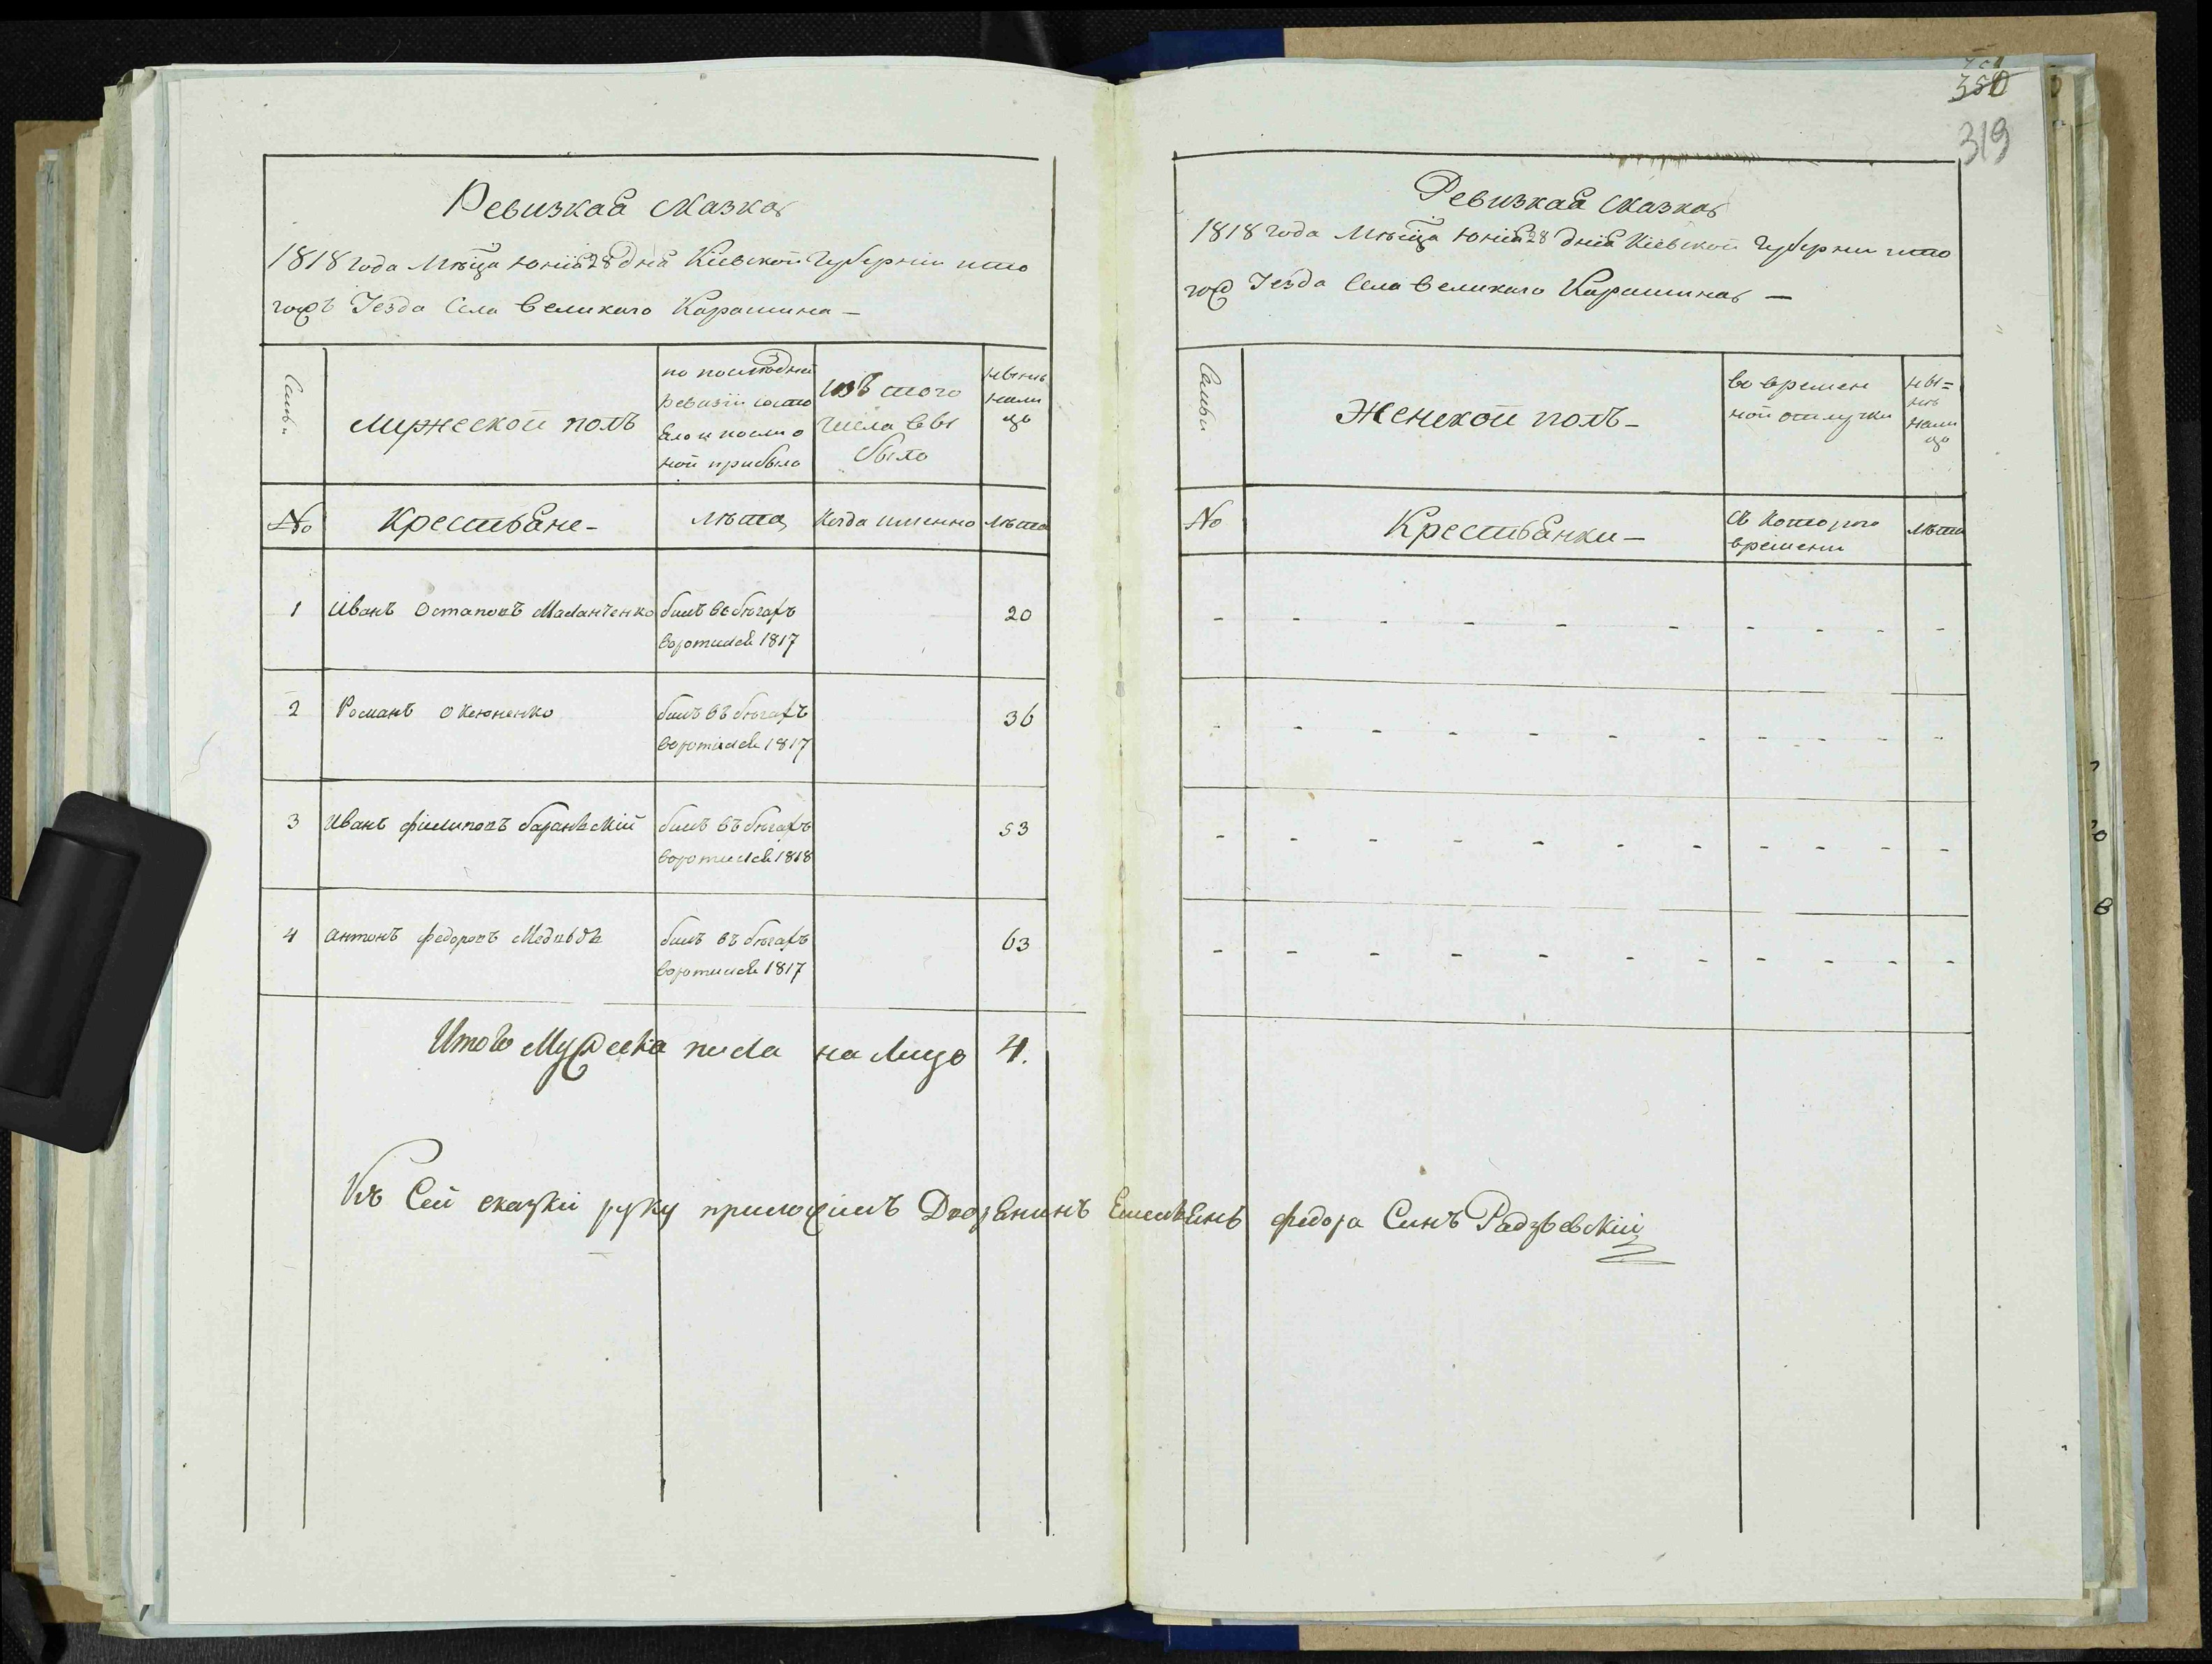 Ревизкая сказка
1818 года Мѣсяца Юнія 28 дня Кіевской Губерніи итого
гожъ Уезда Села Великаго Карашина —
Семьи
Мужеской полъ
по последней
ревизіи состо
яло и после о
ной прибыло
изъ того
числа выбыло
ныне
нали
цо
№
Крестьяне-
лѣта
Когда именно
лѣта
1 Иванъ Остаповъ Маланченко былъ въ бѣгахъ 20
воротился 1817
2 Романъ Оксюненко былъ въ бѣгахъ 36
воротился 1817
3 Иванъ Филиповъ барановскій былъ въ бѣгахъ 53
воротился 1818
4 антонъ федоровъ Медвѣдь былъ въ бѣгахъ 63
воротился 1817
Итого Мужеска пола на лицо 4.
Къ Сей сказки руку приложилъ Дворянинъ Емельянъ федора Синъ Радзѣевскій
350
319
Ревизкая сказка
1818 года Мѣсяца Юнія 28 дня Кіевской Губерни итого
гож Уезда Села Великаго Карашина —
Семьи
Женской полъ-
во времен
ной отлучки
ны=
нѣ
нали
цо
№
Крестьянки-
съ котораго
времени
лѣта